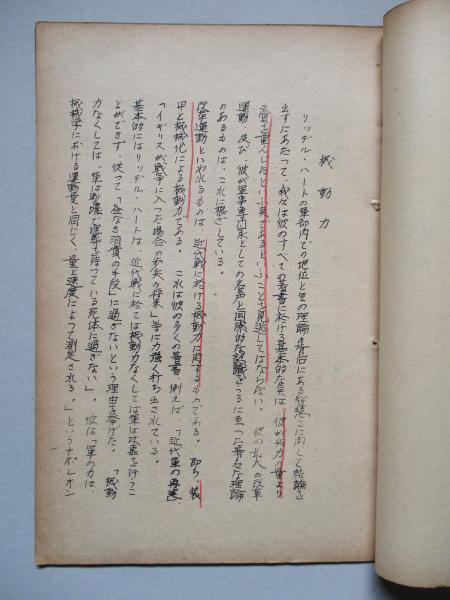 機動力
リッデル・ハートの軍部内での地位と其の理論の背后にある智慧とに関して結論を
出すにあたって、我々は彼のすべての著書に於ける基本的な矣は彼が兵力の量より
も質を重んじたといふ矣であるといふことを見逃してはならない。彼の最大の改革
運動 及び、彼が軍事専門家としての名声と国際的な認識をうるに至った著名な理論
のあるものは、これに根ざしている。
改革運動といわれるものは、近代戦に於ける機動力に関するものである。即ち装
甲と機械化による機動力である。これは彼の多くの著書 例えば「近代軍の再建、
「イギリスが戦争に入った場合の歩兵の将来」等に力強く打ち出されている。
基本的にはリッデル・ハートは、近代戦に於ては機動力なくしては軍は攻撃を行うこ
とができず、従って「益なき消費の手段」に過ぎないという理由を挙げた。「機動
力なくしては、軍は塹壕で埋葬を待っている死体に過ぎない」。彼は「軍の力は
機械学における運動量と同じく、量と速度によって測定される。」というナポレオン